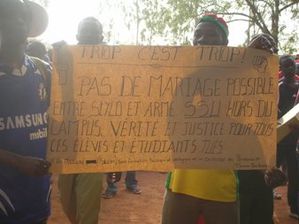 TROP C'EST TROP!
PAS DE MARIAGE POSSIBLE
ENTRE STYLO ET ARME. SSLI HORS DU
CAMPUS, VÉRITÉ ET JUSTICE POUR TOUS
CES ÉLÈVES ET ÉTUDIANTS TUÉS
SAMSUNG
mobile